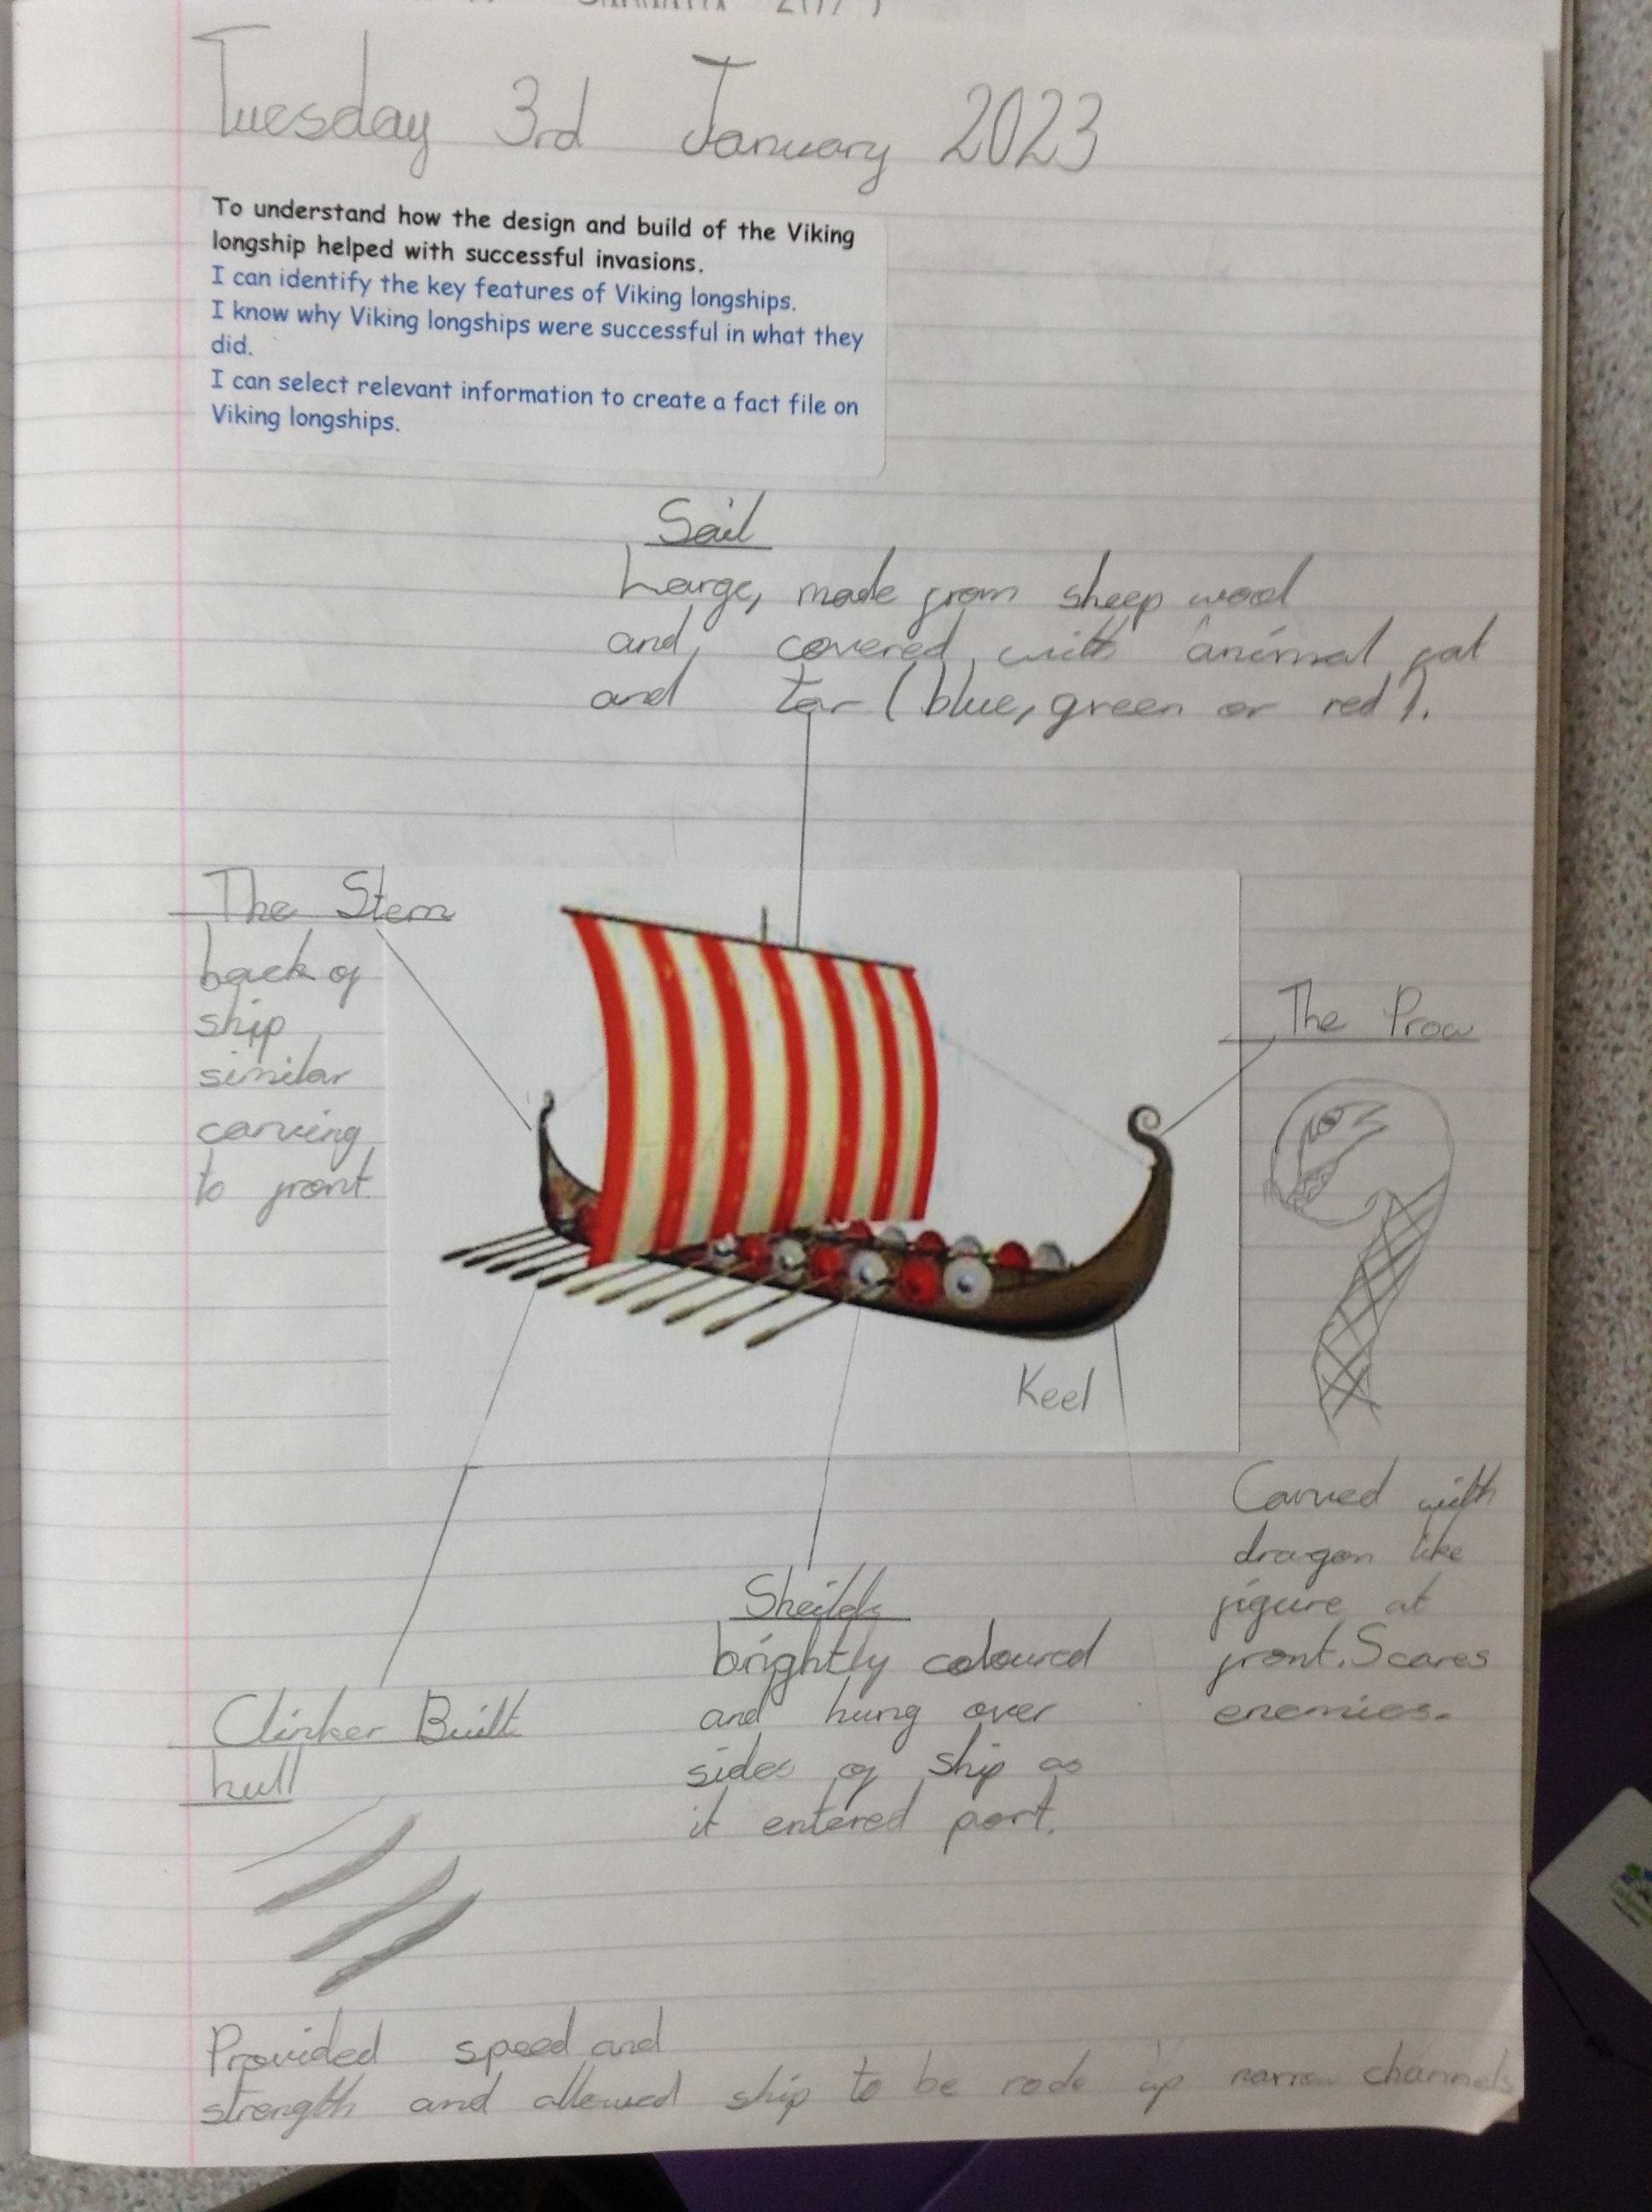 Tuesday 3rd January 2023
To understand how the design and build of the Viking
longship helped with successful invasions.
I can identify the key features of Viking longships.
I know why Viking longships were successful in what they
did.
I can select relevant information to create a fact file on
Viking longships.
Sail
Large, made from sheep wool
and, covered with animal fat
and tar (blue, green or red).
The Stern
back of
ship
similar
carving
to front.
The Prow
Keel
Carved with
dragon like
figure at
front. Scares
enemies.
Sheilds
brightly coloured
and hung over
sides of ship as
it entered port.
Clinker Built
hull
Provided speed and
strength and allowed ship to be rode up narrow channels